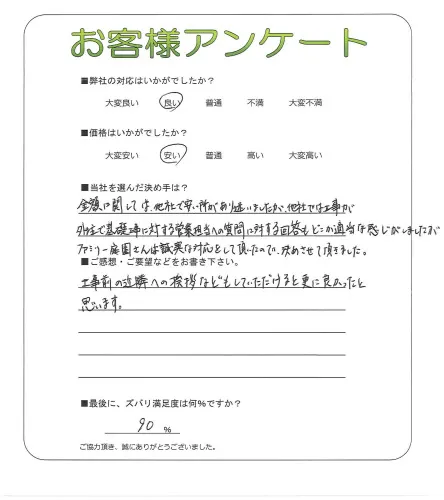 お客様アンケート
■弊社の対応はいかがでしたか?
大変良い 良い 普通 不満 大変不満
■価格はいかがでしたか?
大変安い 安い 普通 高い 大変高い
■当社を選んだ決め手は?
金額に関しては、他社で安い所があり迷いましたが、他社では工事が
外注で基礎等に対する営業担当への質問に対する回答もどこか適当な感じがしましたが
ファミリー庭園さんは誠実な対応をして頂いたので、決めさせて頂きました。
■ご感想・ご要望などをお書き下さい。
工事前の近隣への挨拶などもしていただけると更に良かったと
思います。
■最後に、ズバリ満足度は何%ですか?
90 %
ご協力頂き、誠にありがとうございました。